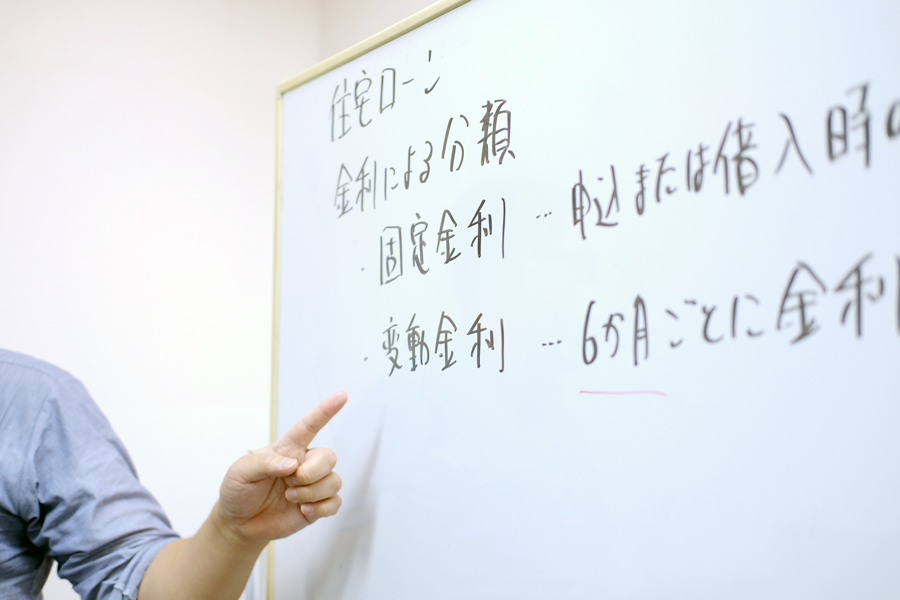 住宅ローン
金利による分類
・固定金利 … 申込または借入時の
・変動金利 … 6か月ごとに金利